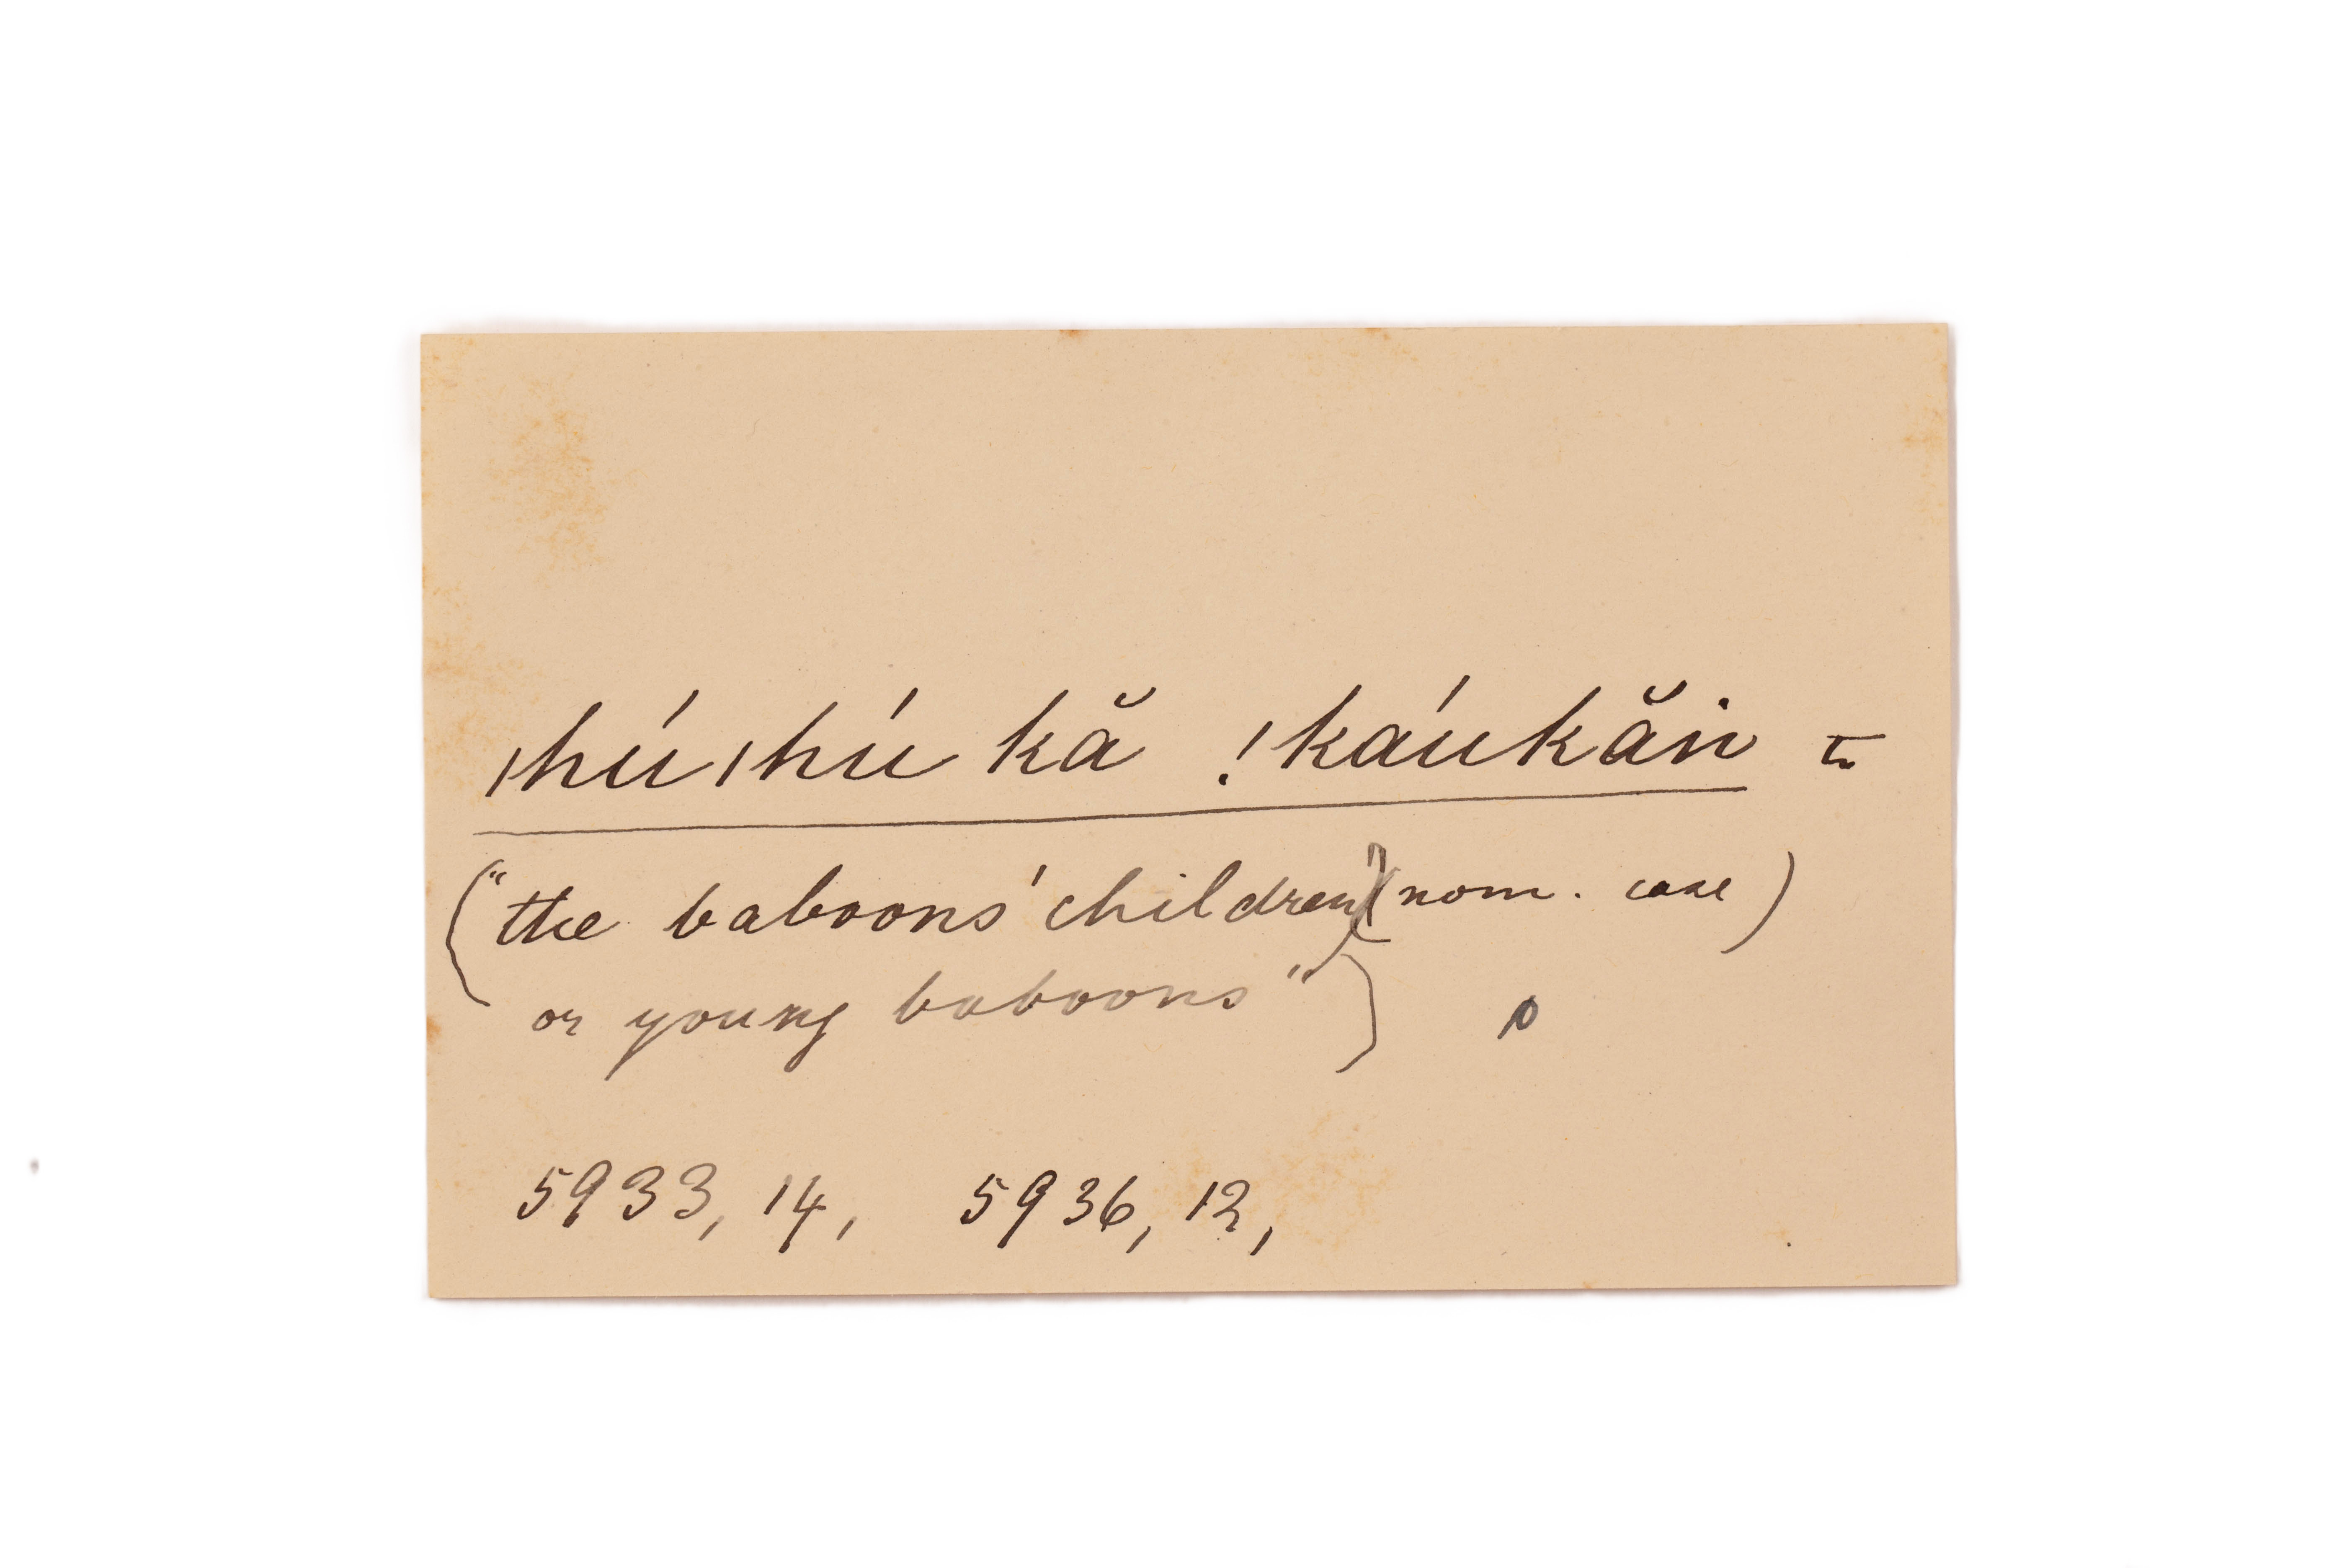 ǀhúǀhú kă !kaúkăn =
("the baboons' children) (nom. case)
or young baboons")
5933, 14, 5936, 12,